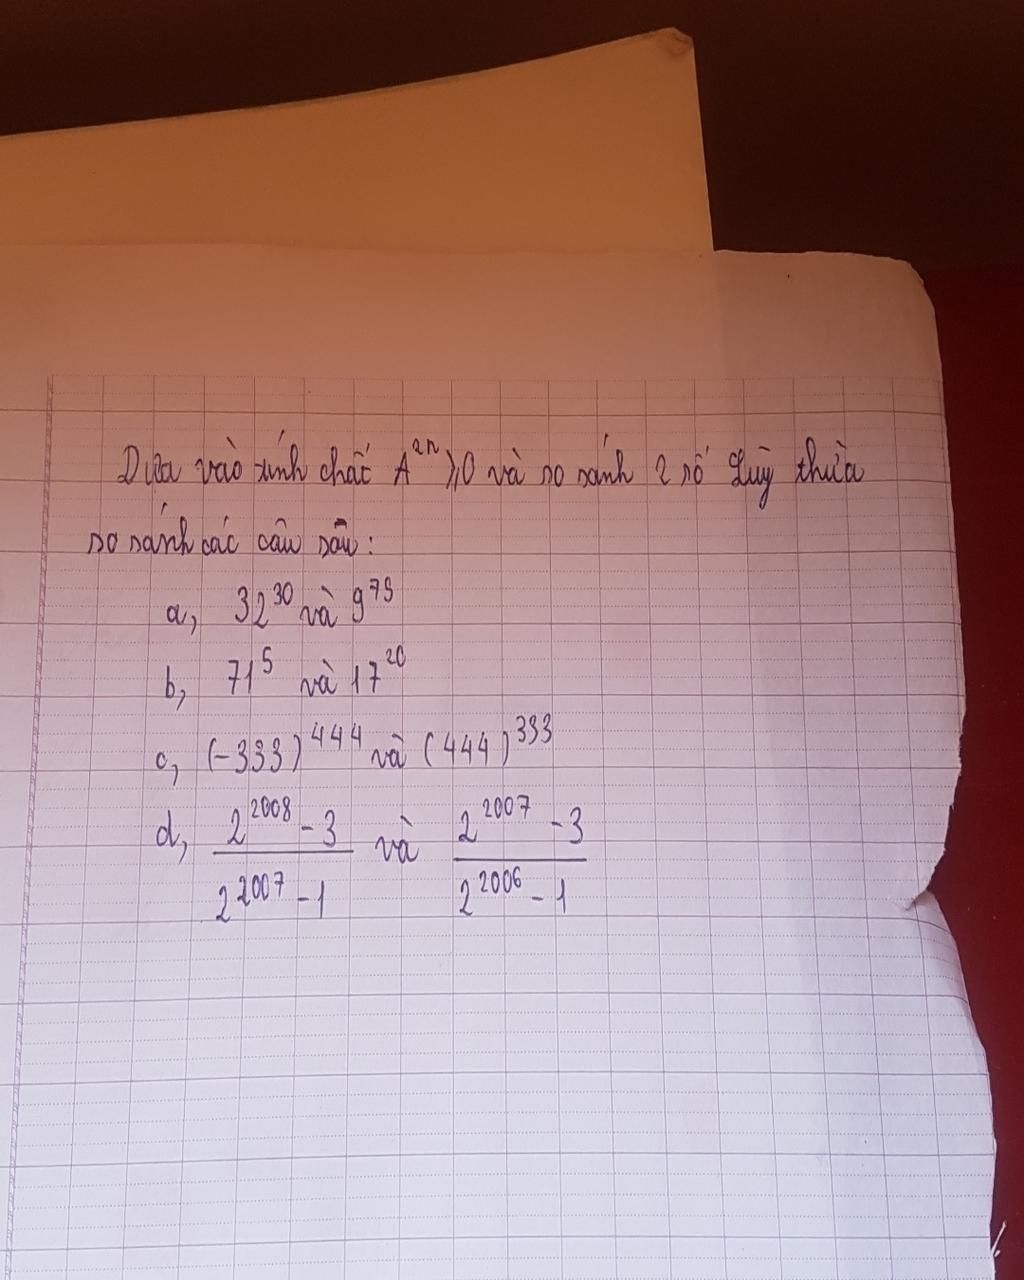 Dựa vào tính chất A^{2n} ≥ 0 và so sánh 2 số Luỹ thừa
so sánh các câu sau:
a, 32^{30} và 9^{79}
b, 71^5 và 17^{20}
c, (-333)^{444} và (444)^{333}
d, \frac{2^{2008} - 3}{2^{2007} - 1} và \frac{2^{2007} - 3}{2^{2006} - 1}